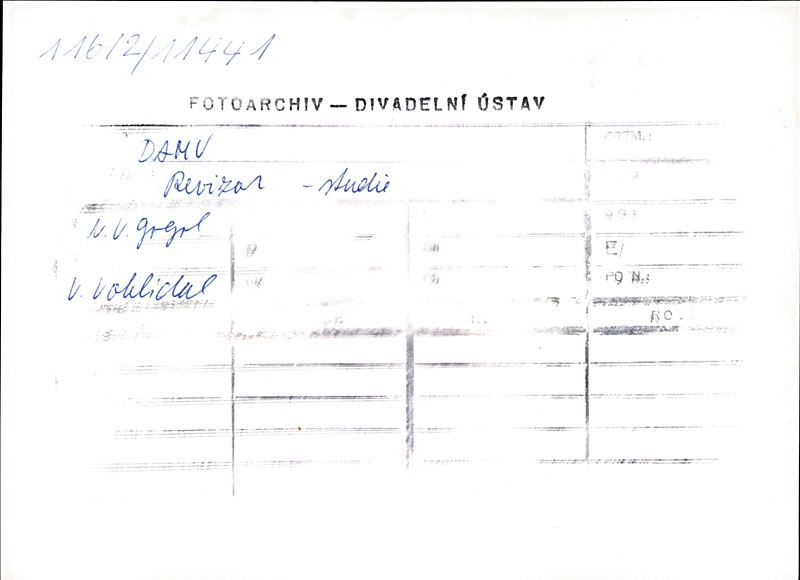 116/2/11441
FOTOARCHIV — DIVADELNÍ ÚSTAV
DAMU
PREM.:
Revizor - studie
N. V. Gogol
E/
V. Vohlídal
PO N.: